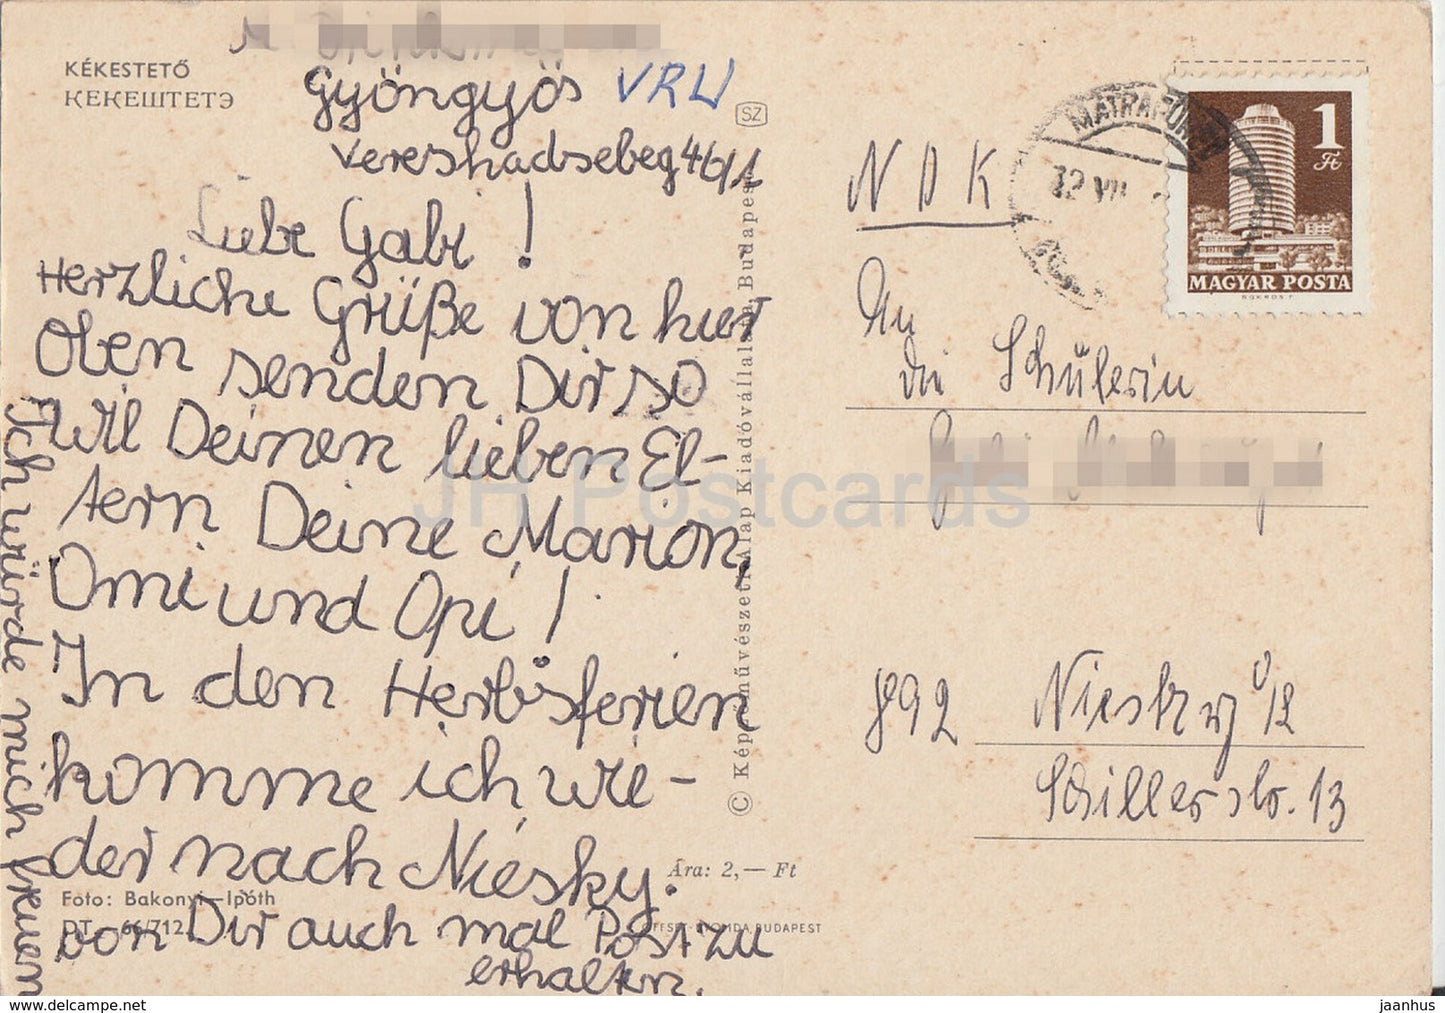 KÉKESTETŐ
КЕКЕШТЕТЭ
Gyöngyös VRU
Vereshadsebeg 46/1
SZ
Liebe Gabi!
Herzliche Grüße von hier
Oben senden Dir so
wil Deinen lieben El-
tern Deine Marion,
Omi und Opi!
In den Herbsferien
komme ich wie-
der nach Niesky.
Ich würde mich freuen
von Dir auch mal Post zu
erhalten.
Foto: Bakonyi—Ipóth
DT. 66/712.
Ára: 2,— Ft
OFFSET-NYOMDA, BUDAPEST
© Képzőművészeti Alap Kiadóvállalata, Budapest
NDK
MÁTRAFÜRED
72 VII
1
Ft
MAGYAR POSTA
An
die Schülerin
892 Niesky O/L
Schillerstr. 13
JH Postcards
jaanhus | delcampe.net